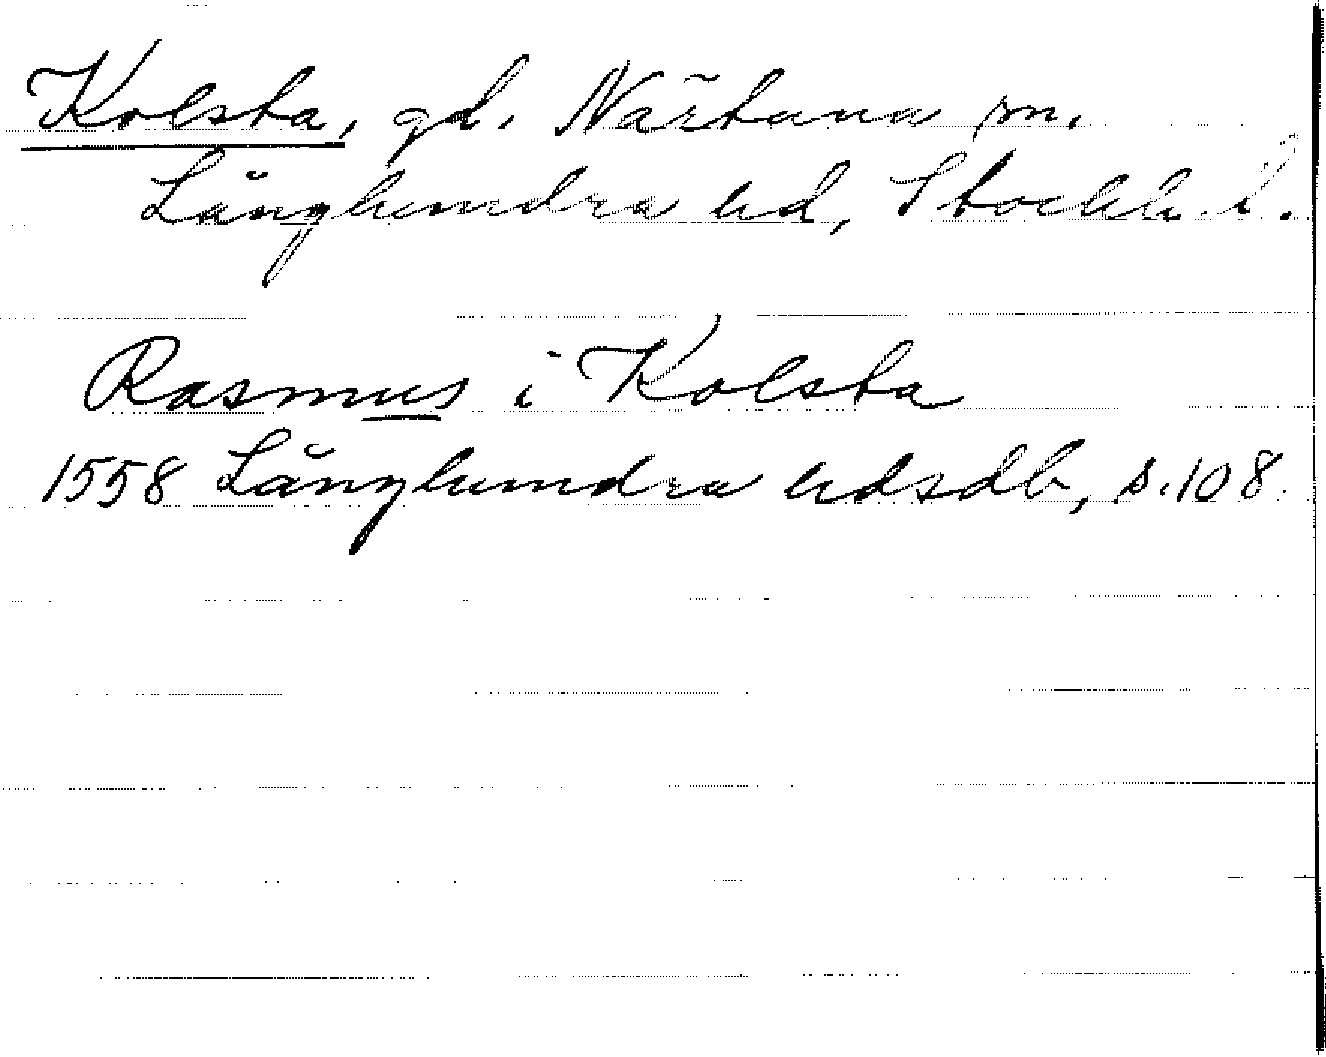 Kolsta, gd. Närtuna sn.
Långhundra hd, Stockh. l.
Rasmus i Kolsta
1558 Långhundra hdsdb, s. 108